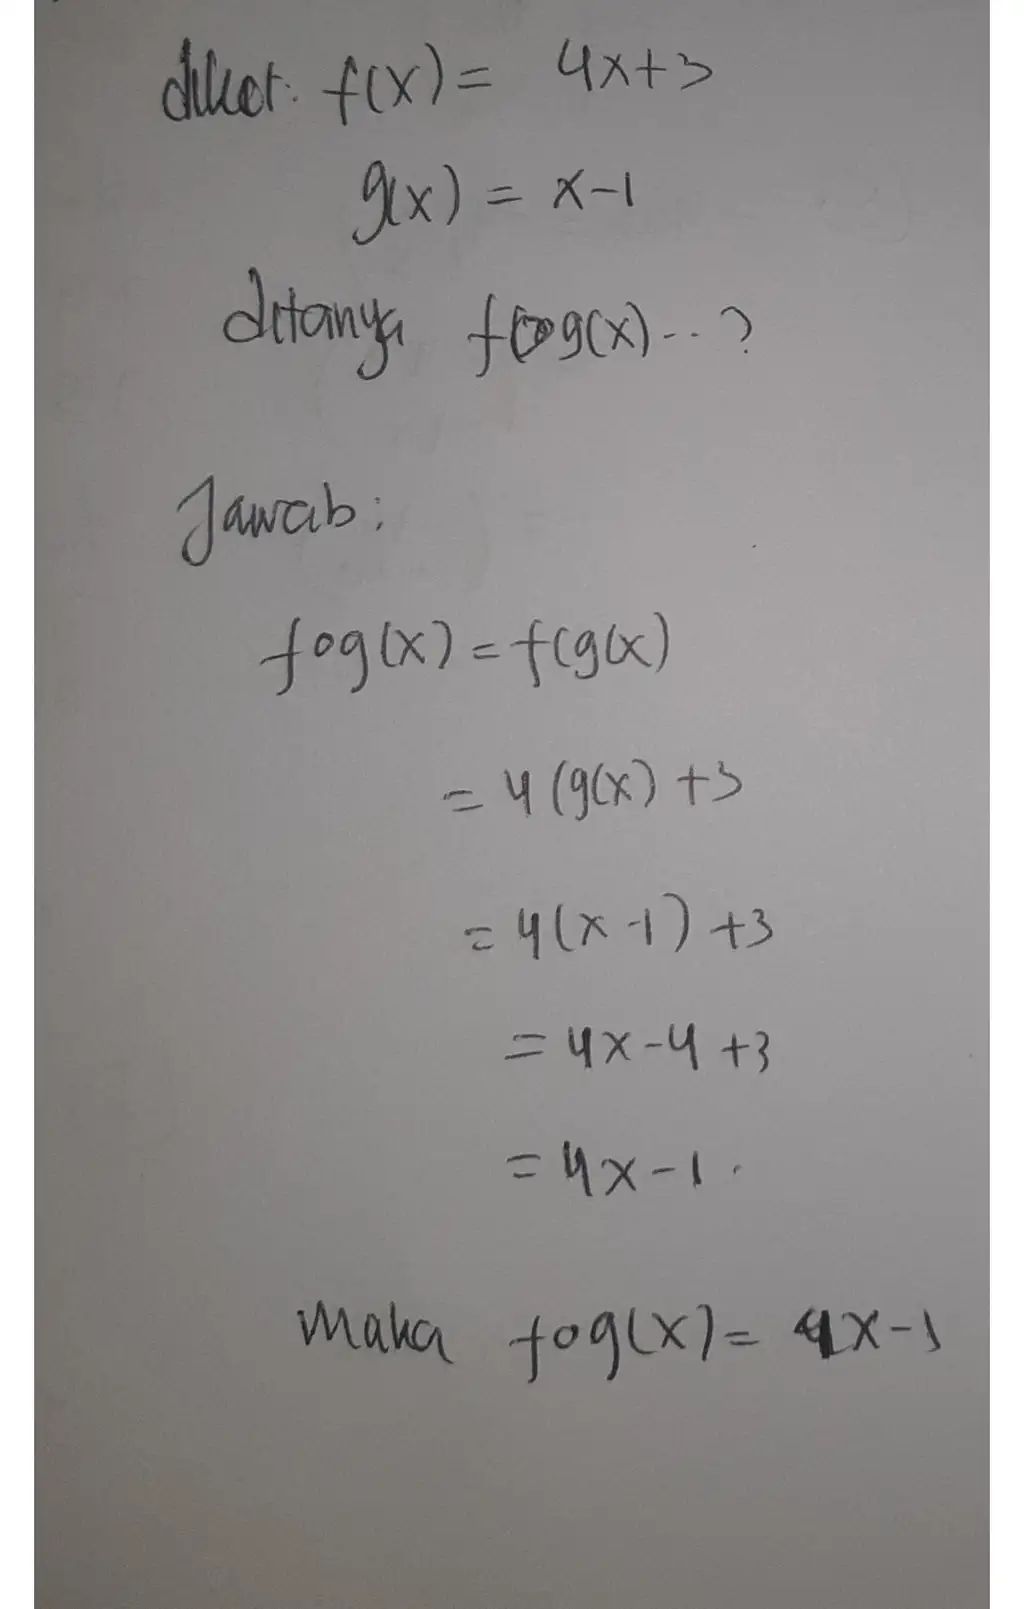 diket: f(x) = 4x+3
g(x) = x-1
ditanya fog(x)...?
Jawab:
fog(x) = f(g(x)
= 4 (g(x) +3
= 4(x-1) +3
= 4x-4 +3
= 4x-1.
Maka fog(x) = 4x-1